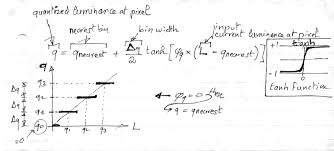 quantized luminance at pixel
nearest bin
bin width
input
current luminance at pixel
q = qnearest + Δq/2 tanh [φq × (L - qnearest)]
tanh
+1
-1
0
tanh Function
q
q3
q2
q1
q0
Δq
Δq
Δq
q1 q2 q3 L
=0
φq = 0 then
q = qnearest